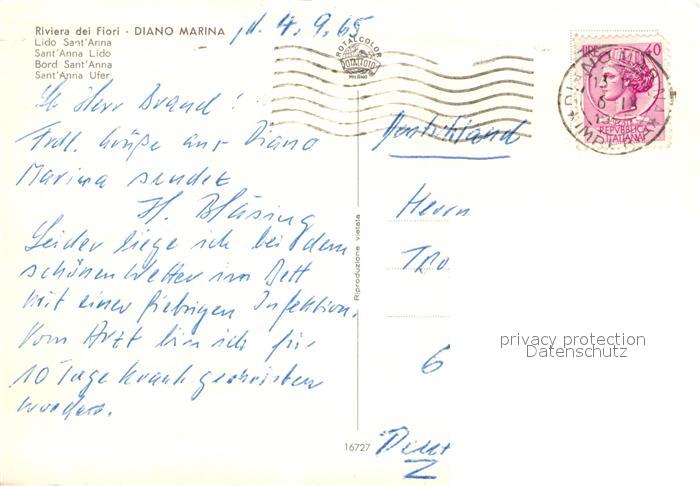 Riviera dei Fiori - DIANO MARINA
Lido Sant'Anna
Sant'Anna Lido
Bord Sant'Anna
Sant'Anna Ufer
4.9.65
ROTALCOLOR
ROTALFOTO
MILANO
LIRE 40
REPVBBLICA
ITALIANA
Herr Brand!
Frdl. Grüße aus Diano
Marina sendet
H. Bläsing
Leider liege ich bei dem
schönen Wetter im Bett
mit einer fiebrigen Infektion.
Vom Arzt bin ich für
10 Tage krank geschrieben
worden.
Deutschland
Herrn
6
Riproduzione vietata
16727
privacy protection
Datenschutz